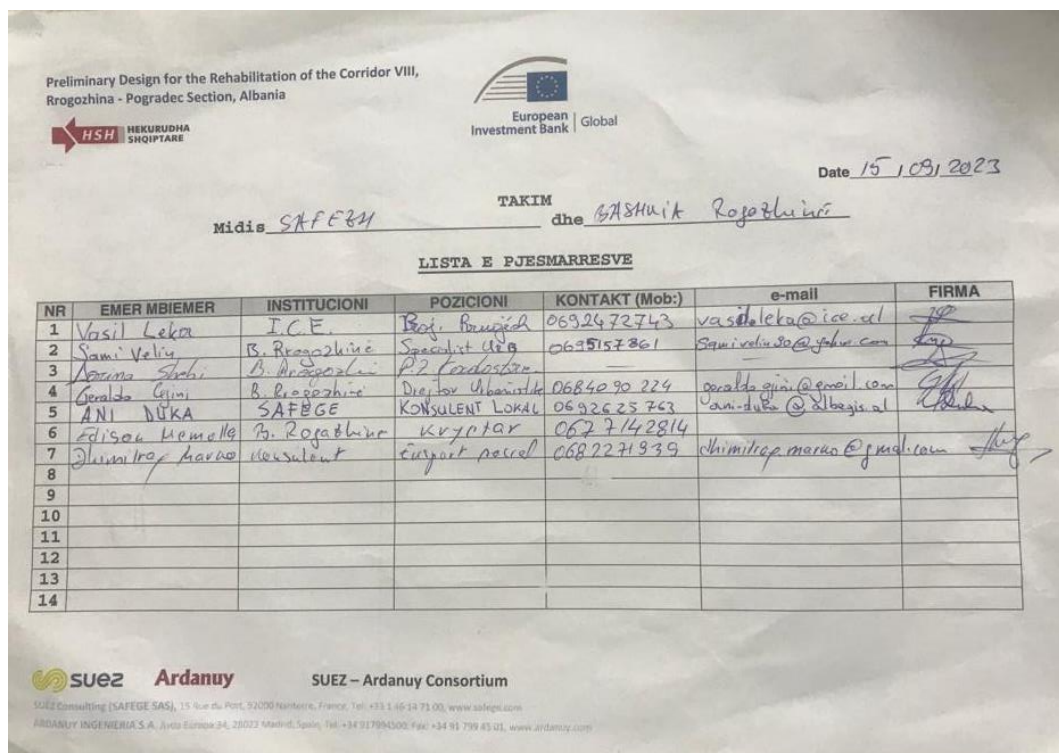 Preliminary Design for the Rehabilitation of the Corridor VIII,
Rrogozhina - Pogradec Section, Albania
HSH HEKURUDHA
SHQIPTARE
European
Investment Bank | Global
Date 15/09/2023
TAKIM
Midis dhe BASHKIA Rogozhinë
LISTA E PJESMARRESVE
NR EMER MBIEMER INSTITUCIONI POZICIONI KONTAKT (Mob:) e-mail FIRMA
1 Vasil Leka I.C.E. 0692472743
2 Sami Veliu B. Rrogozhinë Specialist 0695157861
3 Shehi
4 Geraldo B. Rrogozhinë Drejtor Urbanistike 0684090224
5 ANI DUKA SAFEGE KONSULENT LOKAL 0692625763
6 Edison B. Rogozhine Kryetar 0677142814
7 Dhimitraq Marko Konsulent 0682271939
8
9
10
11
12
13
14
SUEZ Ardanuy SUEZ – Ardanuy Consortium
SUEZ Consulting (SAFEGE SAS), 15 Rue du Port, 92000 Nanterre, France, Tel: +33 1 46 14 71 00, www.safege.com
ARDANUY INGENIERIA S.A. Avda Europa 34, 28023 Madrid, Spain, Tel: +34 917994500; Fax: +34 91 799 45 01, www.ardanuy.com